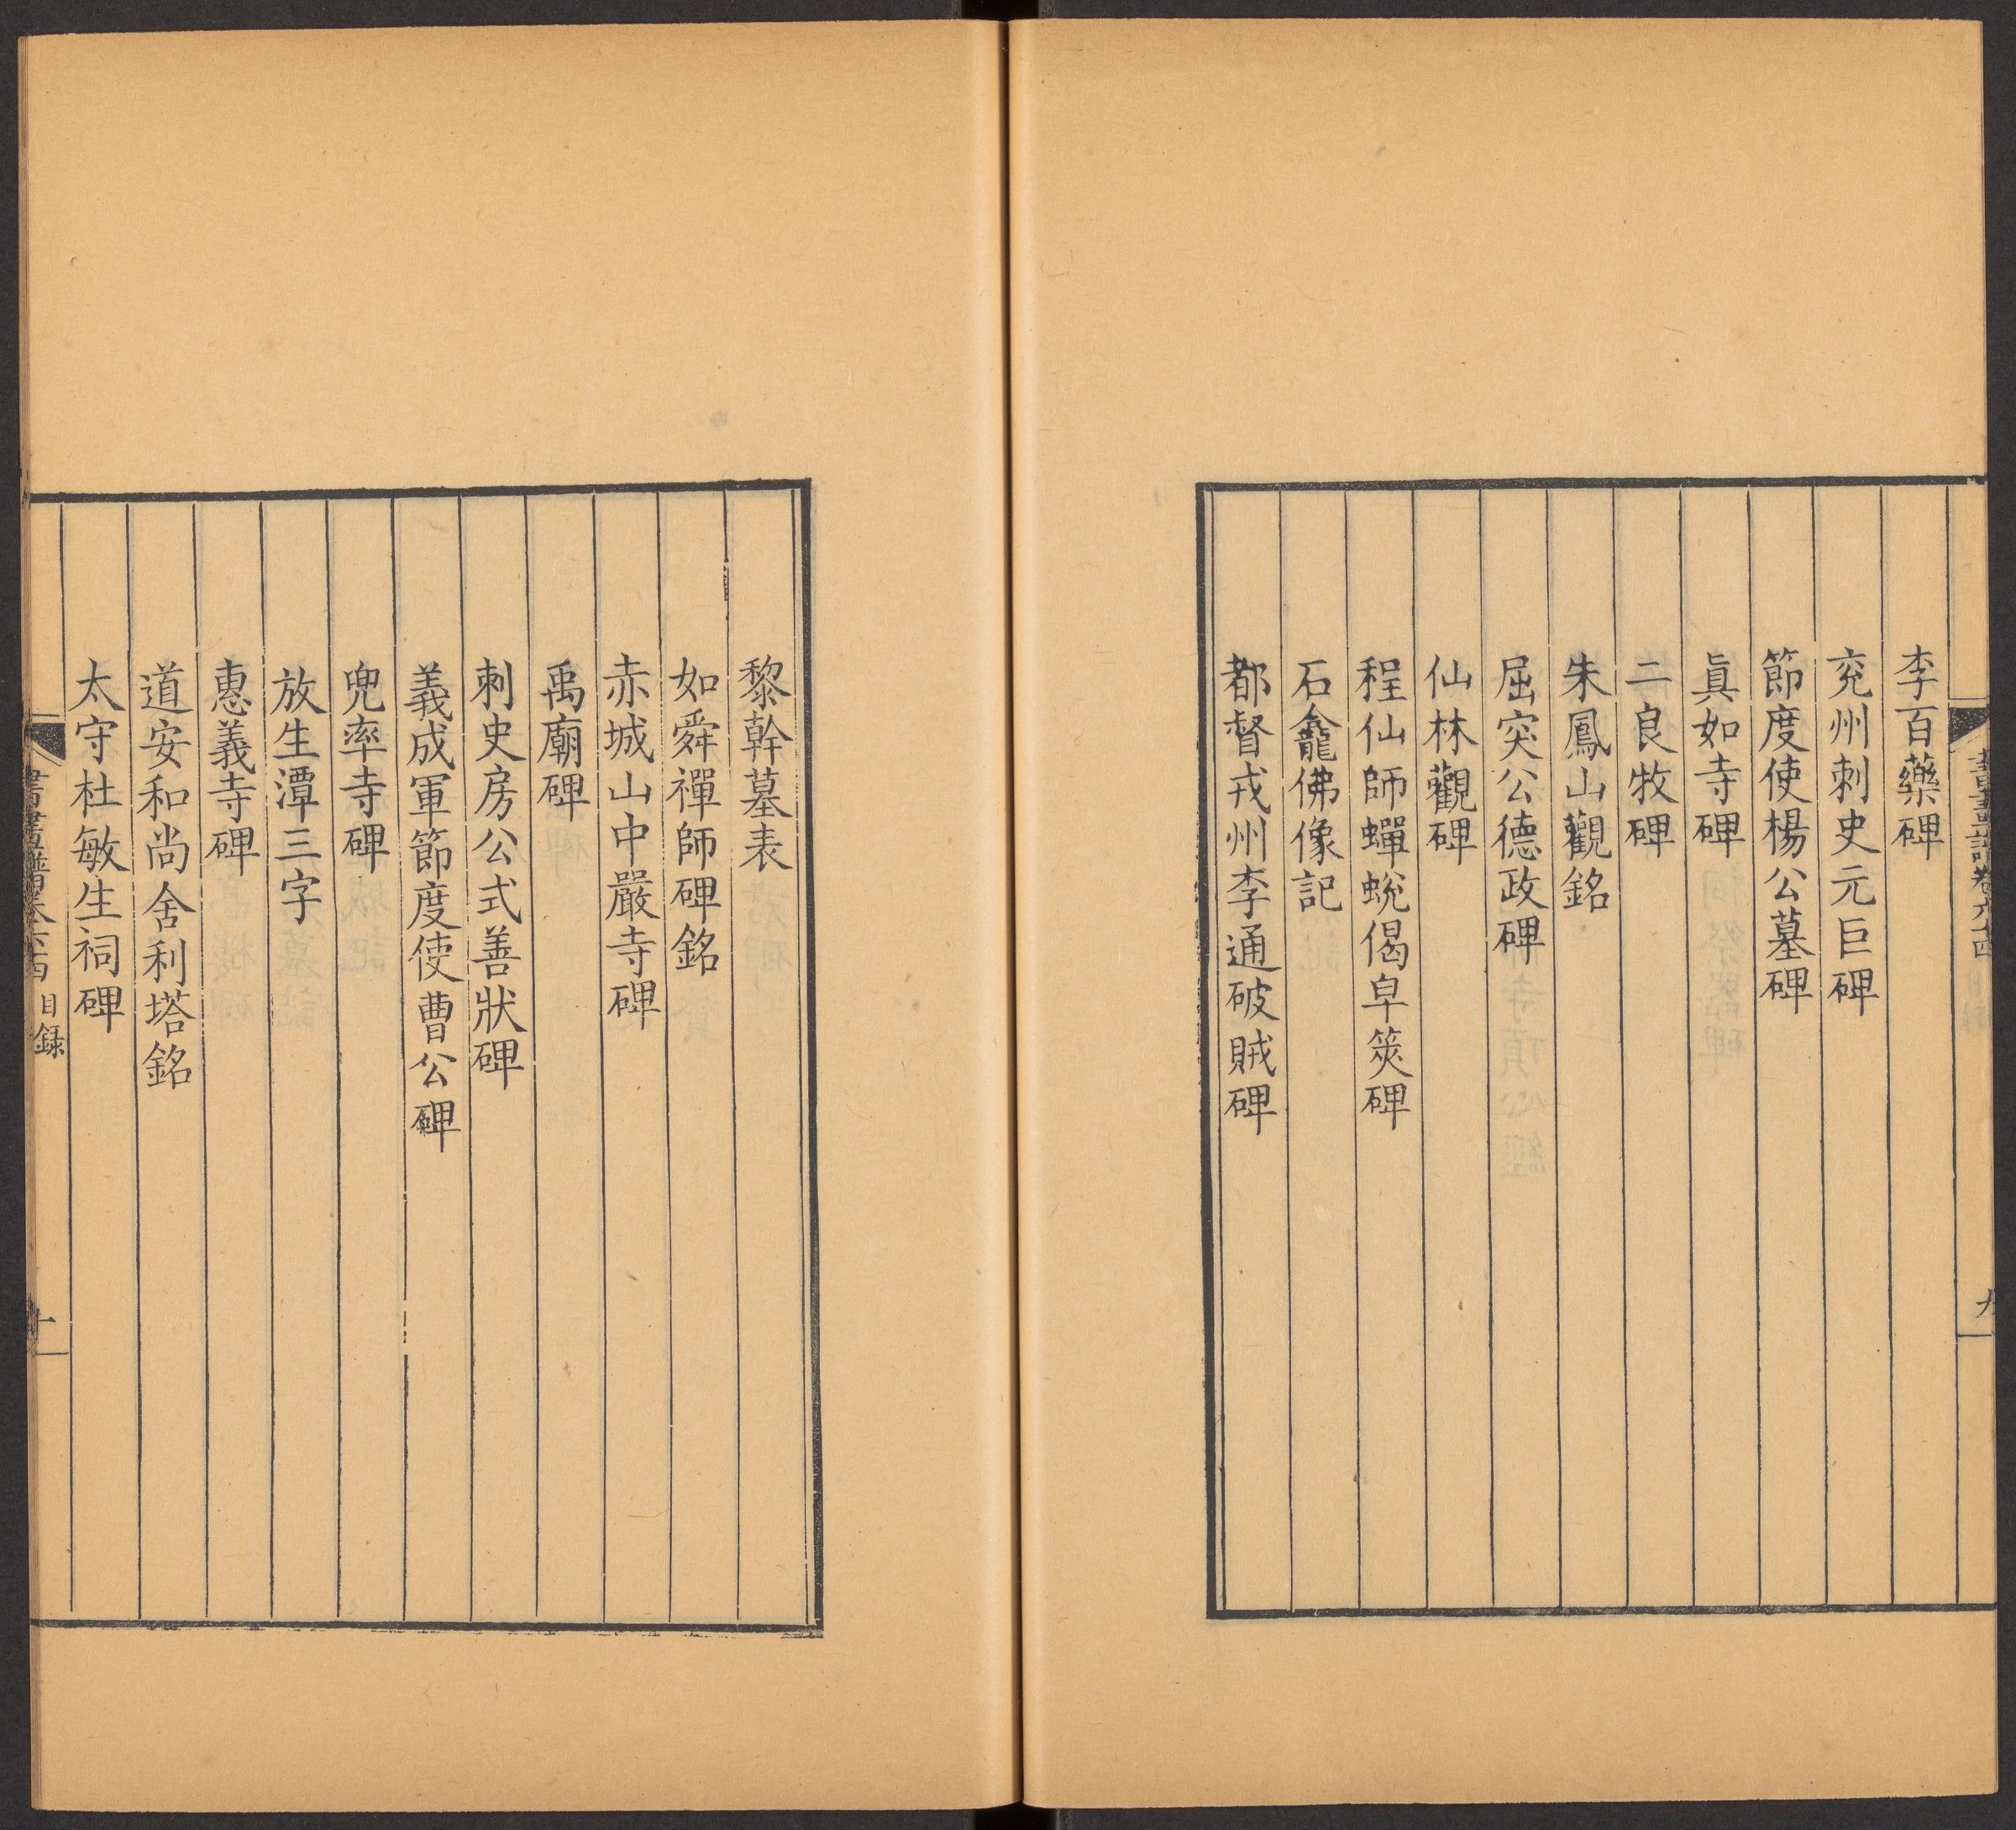 李百藥碑
兖州刺史元巨碑
節度使楊公墓碑
眞如寺碑
二良牧碑
朱鳳山觀銘
屈突公德政碑
仙林觀碑
程仙師蟬蛻偈皁筴碑
石龕佛像記
都督戎州李通破賊碑
黎幹墓表
如舜禪師碑銘
赤城山中嚴寺碑
禹廟碑
刺史房公式善狀碑
義成軍節度使曹公碑
兜率寺碑
放生潭三字
惠義寺碑
道安和尚舍利塔銘
太守杜敏生祠碑
目錄